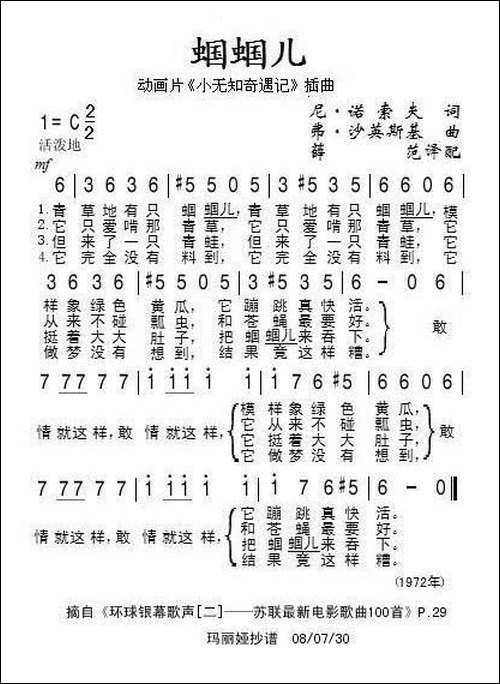 蝈蝈儿
动画片《小无知奇遇记》插曲
尼·诺索夫 词
1=C 2/2
弗·沙英斯基 曲
活泼地
薛 范译配
mf
6 | 3 6 3 6 | #5 5 0 5 | 3 5 3 5 | 6 6 0 6 |
1.青 草地有只 蝈蝈儿,青 草地有只 蝈蝈儿,模
2.它 只爱啃那 青草,它 只爱啃那 青草,它
3.但 来了一只 青蛙,但 来了一只 青蛙,它
4.它 完全没有 料到,它 完全没有 料到,它
3 6 3 6 | #5 5 0 5 | 3 5 3 #5 | 6 - 0 6 |
样象绿色 黄瓜,它 蹦跳真快活。
从来不碰 瓢虫,和 苍蝇最要好。 敢
挺着大大 肚子,把 蝈蝈儿来吞下。
做梦没有 想到,结 果竟这样糟。
7 77 77 7 | i ii i i | i 7 6 #5 | 6 6 0 6 |
模 样象绿色 黄瓜,
情就这样,敢 情就这样, 它 从来不碰 瓢虫, 敢
它 挺着大大 肚子,
它 做梦没有 想到,
7 77 77 7 | i ii i i | i 7 6 #5 | 6 - 0 ‖
它 蹦跳真快活。
情就这样,敢 情就这样, 和 苍蝇最要好。
把 蝈蝈儿来吞下。
结 果竟这样糟。
(1972年)
摘自《环球银幕歌声[二]——苏联最新电影歌曲100首》P.29
玛丽娅抄谱 08/07/30